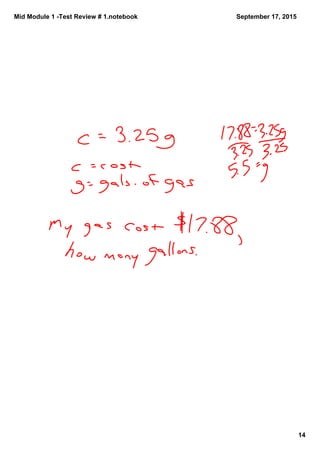 Mid Module 1 -Test Review # 1.notebook
September 17, 2015
c = 3.25g
c = cost
g = gals. of gas
17.88 = 3.25g
3.25 3.25
5.5 = g
My gas cost $17.88,
how many gallons.
14